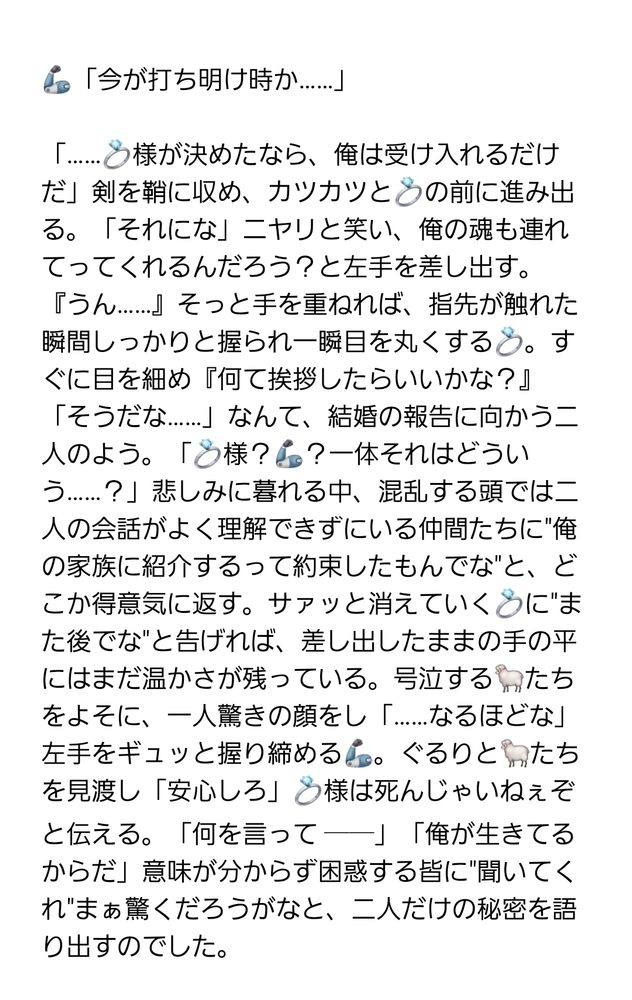 🦾「今が打ち明け時か……」
「……💍様が決めたなら、俺は受け入れるだけ
だ」剣を鞘に収め、カツカツと💍の前に進み出
る。「それにな」ニヤリと笑い、俺の魂も連れ
てってくれるんだろう？と左手を差し出す。
『うん……』そっと手を重ねれば、指先が触れた
瞬間しっかりと握られ一瞬目を丸くする💍。す
ぐに目を細め『何て挨拶したらいいかな？』
「そうだな……」なんて、結婚の報告に向かう二
人のよう。「💍様？🦾？一体それはどうい
う……？」悲しみに暮れる中、混乱する頭では二
人の会話がよく理解できずにいる仲間たちに"俺
の家族に紹介するって約束したもんでな"と、ど
こか得意気に返す。サァッと消えていく💍に"ま
た後でな"と告げれば、差し出したままの手の平
にはまだ温かさが残っている。号泣する🐑たち
をよそに、一人驚きの顔をし「……なるほどな」
左手をギュッと握り締める🦾。ぐるりと🐑たち
を見渡し「安心しろ」💍様は死んじゃいねぇぞ
と伝える。「何を言って ──」「俺が生きてる
からだ」意味が分からず困惑する皆に"聞いてく
れ"まぁ驚くだろうがなと、二人だけの秘密を語
り出すのでした。